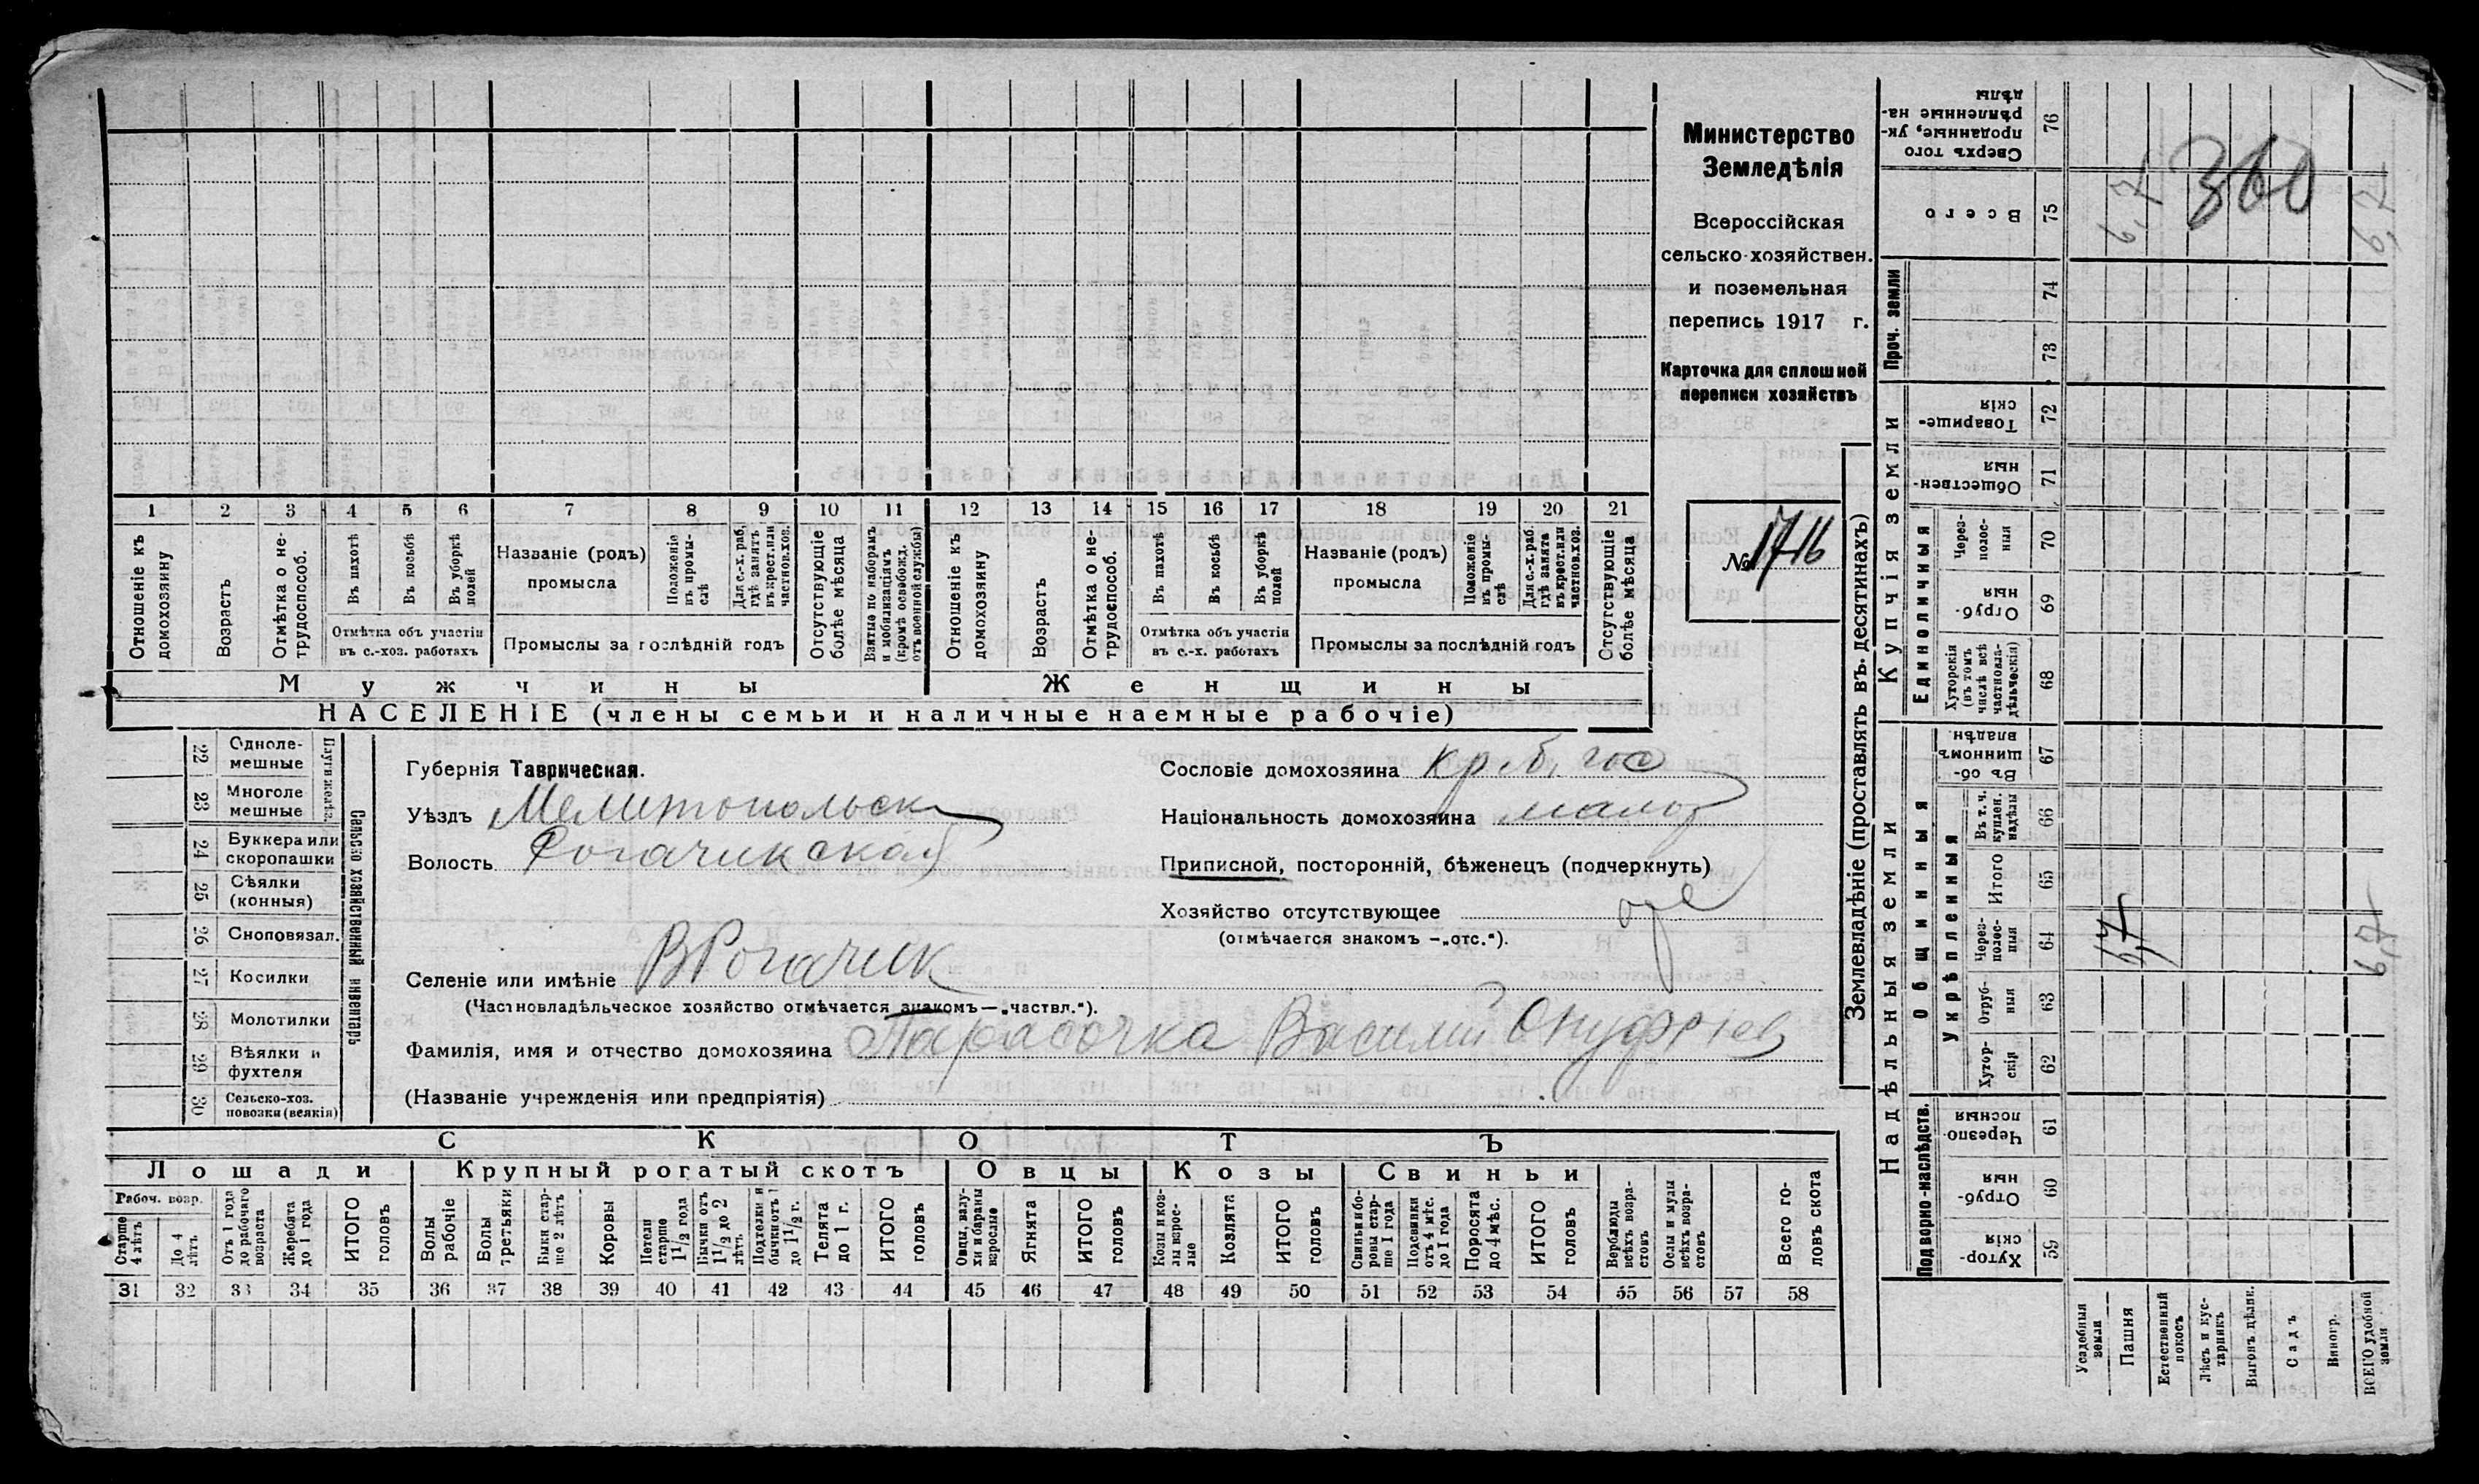 Министерство
Земледѣлія
Всероссійская
сельско-хозяйствен.
и поземельная
перепись 1917 г.
Карточка для сплошной
переписи хозяйствъ
№ 1716
1 2 3 4 5 6 7 8 9 10 11 12 13 14 15 16 17 18 19 20 21
Отношеніе къ домохозяину
Возрастъ
Отмѣтка о не-трудоспособ.
Въ пахотѣ
Въ косьбѣ
Въ уборкѣ полей
Отмѣтка объ участіи
въ с.-хоз. работахъ
Названіе (родъ)
промысла
Положеніе въ промы-слѣ
Для с.-х. раб. гдѣ занятъ въ крест. или частнов. хоз.
Промыслы за послѣдній годъ
Отсутствующіе болѣе мѣсяца
Взятые по наборамъ и мобилизаціямъ (кромѣ освобожд. отъ военной службы)
Отношеніе къ домохозяину
Возрастъ
Отмѣтка о не-трудоспособ.
Въ пахотѣ
Въ косьбѣ
Въ уборкѣ полей
Отмѣтка объ участіи
въ с.-х. работахъ
Названіе (родъ)
промысла
Положеніе въ промы-слѣ
Для с.-х. раб. гдѣ занята въ крест. или частнов. хоз.
Промыслы за послѣдній годъ
Отсутствующіе болѣе мѣсяца
Мужчины Женщины
НАСЕЛЕНІЕ (члены семьи и наличные наемные рабочіе)
22 Одноле-мешные
23 Многоле мешные
Плуги желѣз.
24 Буккера или скоропашки
25 Сѣялки (конныя)
26 Сноповязал.
27 Косилки
28 Молотилки
29 Вѣялки и фухтеля
30 Сельско-хоз. повозки (всякія)
Сельско хозяйственный инвентарь
Губернія Таврическая.
Уѣздъ Мелитопольск
Волость Рогачикская
Селеніе или имѣніе В Рогачик
(Частновладѣльческое хозяйство отмѣчается знакомъ—„частвл.“).
Фамилія, имя и отчество домохозяина Парасочка Василий Онуфріев
(Названіе учрежденія или предпріятія)
Сословіе домохозяина кр. б. гос
Національность домохозяина малор
Приписной, посторонній, бѣженецъ (подчеркнуть)
Хозяйство отсутствующее
(отмѣчается знакомъ —„отс.“).
СКОТЪ
Лошади Крупный рогатый скотъ Овцы Козы Свиньи
Рабоч. возр.
Старше 4 лѣтъ
До 4 лѣтъ
Отъ 1 года до рабочаго возраста
Жеребята до 1 года
ИТОГО головъ
Волы рабочіе
Волы третьяки
Быки стар-ше 2 лѣтъ
Коровы
Нетели старше 1 1/2 года
Бычки отъ 1 1/2 до 2 лѣтъ
Подтелки и бычки отъ 1 до 1 1/2 г.
Телята до 1 г.
ИТОГО головъ
Овцы, валу-хи и бараны взрослые
Ягнята
ИТОГО головъ
Козы и коз-лы взрос-лые
Козлята
ИТОГО головъ
Свиньи и бо-ровы стар-ше 1 года
Подсвинки отъ 4 мѣс. до 1 года
Поросята до 4 мѣс.
ИТОГО головъ
Верблюды всѣхъ возра-стовъ
Ослы и мулы всѣхъ возра-стовъ
Всего го-ловъ скота
31 32 33 34 35 36 37 38 39 40 41 42 43 44 45 46 47 48 49 50 51 52 53 54 55 56 57 58
Землевладѣніе (проставлять въ десятинахъ)
Купчія земли
Надѣльныя земли
Сверхъ того проданные, ук-рѣпленные на-дѣлы 76
Всего 75
Проч. земли 74 73
Товарище-скія 72
Обществен-ныя 71
Единоличныя
Через-полос-ныя 70
Отруб-ныя 69
Хуторскія (въ томъ числѣ всѣ частновла-дѣльческія) 68
Общинныя
Въ об-щинномъ владѣн. 67
Укрѣпленныя
Въ т. ч. куплен. надѣлы 66
Итого 65
Через-полос-ныя 64
Отруб-ныя 63
Хутор-скія 62
Подворно-наслѣдств.
Черезпо-лосныя 61
Отруб-ныя 60
Хутор-скія 59
360
Усадебныя земли
Пашня
Естественный покосъ
Лѣсъ и кус-тарникъ
Выгонъ цѣлик.
Садъ
Виногр.
ВСЕГО удобной земли